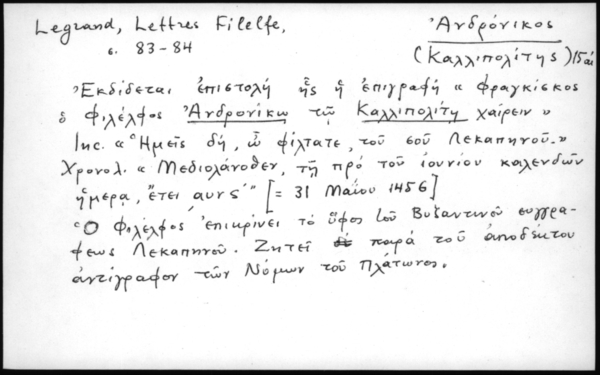 Legrand, Lettres Filelfe,
σ. 83-84
Ἀνδρόνικος
(Καλλιπολίτης) 15 αἰ
Ἐκδίδεται ἐπιστολή ἧς ἡ ἐπιγραφή « Φραγκίσκος
ὁ Φιλέλφος Ἀνδρονίκῳ τῷ Καλλιπολίτῃ χαίρειν »
Inc. « Ἡμεῖς δή, ὦ φίλτατε, τοῦ σοῦ Λεκαπηνοῦ.»
Χρονολ. « Μεδιολάνοθεν, τῇ πρό τοῦ ἰουνίου καλενδῶν
ἡμέρᾳ, ἔτει αυνς´ » [= 31 Μαΐου 1456]
Ὁ Φιλέλφος ἐπικρίνει τό ὕφος τοῦ Βυζαντινοῦ συγγρα-
φέως Λεκαπηνοῦ. Ζητεῖ παρά τοῦ ἀποδέκτου
ἀντίγραφον τῶν Νόμων τοῦ Πλάτωνος.